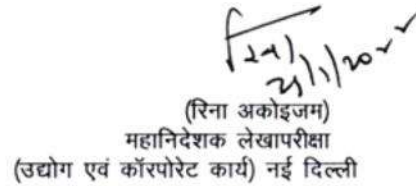 (रिना अकोइजम)
महानिदेशक लेखापरीक्षा
(उद्योग एवं कॉरपोरेट कार्य) नई दिल्ली